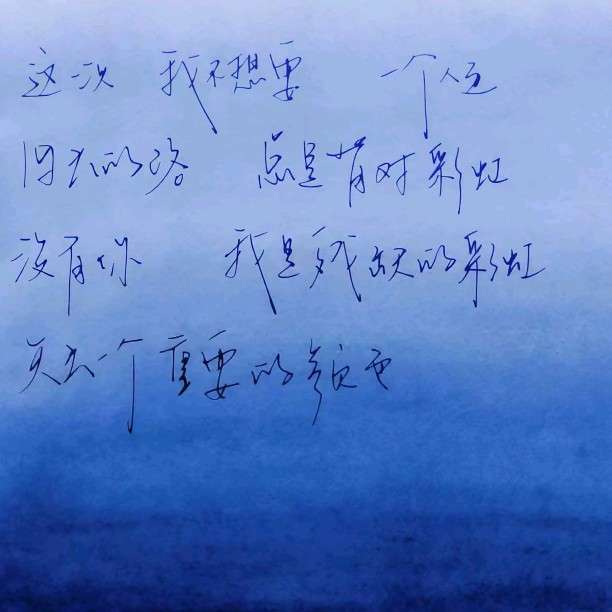 这一次 我不想要 一个人走
回去的路 总是背对彩虹
没有你 我是残缺的彩虹
失去一个重要的颜色